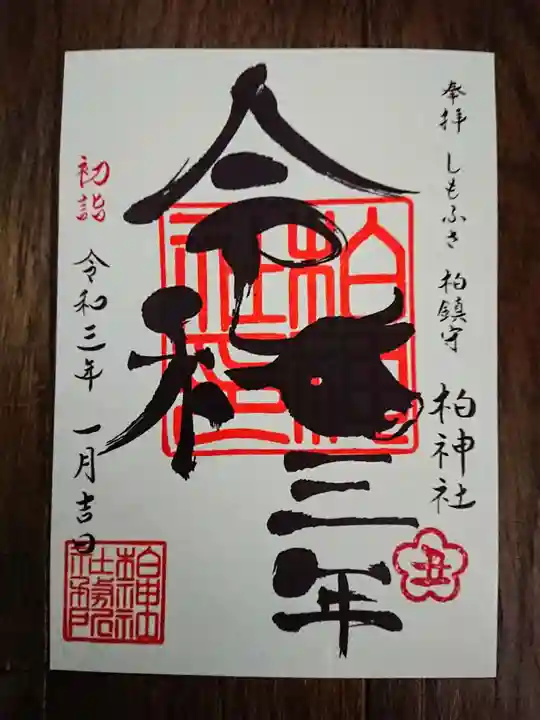 奉拝 しもふさ 柏鎮守
柏神社
令和
三年
初詣
令和三年 一月吉日
丑
柏神社
柏神社社務所